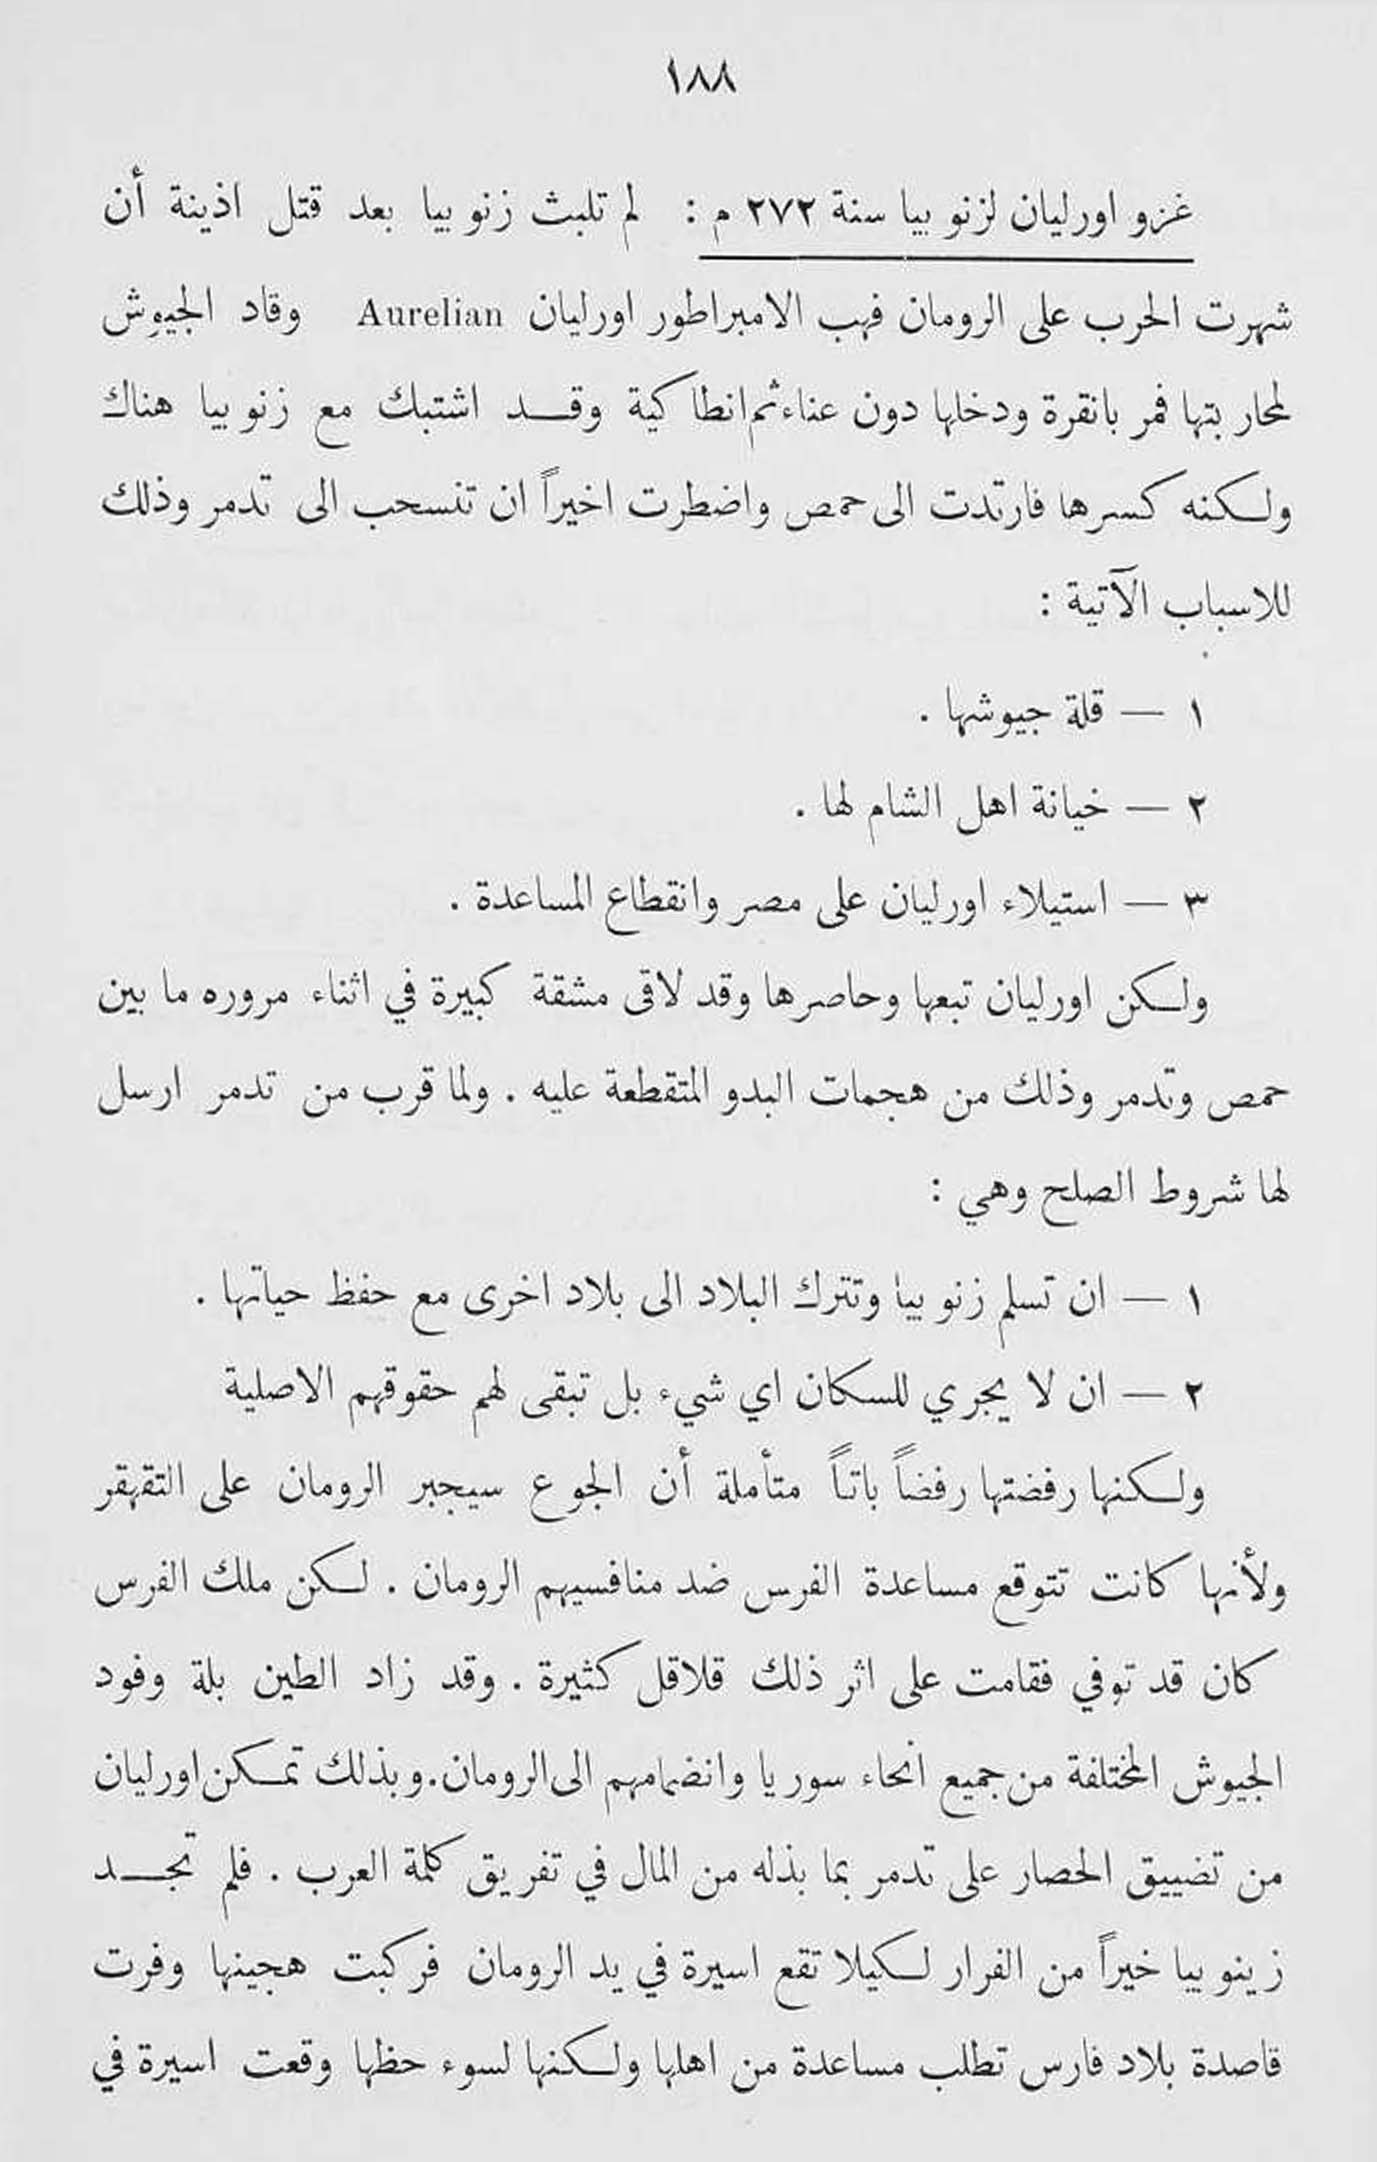 ١٨٨
غزو اورليان لزنوبيا سنة ٢٧٢ م : لم تلبث زنوبيا بعد قتل اذينة أن
شهرت الحرب على الرومان فهب الامبراطور اورليان Aurelian وقاد الجيوش
لمحاربتها فمر بانقرة ودخلها دون عناء ثم انطاكية وقد اشتبك مع زنوبيا هناك
ولكنه كسرها فارتدت الى حمص واضطرت اخيراً ان تنسحب الى تدمر وذلك
للاسباب الآتية :
١ — قلة جيوشها .
٢ — خيانة اهل الشام لها .
٣ — استيلاء اورليان على مصر وانقطاع المساعدة .
ولكن اورليان تبعها وحاصرها وقد لاقى مشقة كبيرة في اثناء مروره ما بين
حمص وتدمر وذلك من هجمات البدو المتقطعة عليه . ولما قرب من تدمر ارسل
لها شروط الصلح وهي :
١ — ان تسلم زنوبيا وتترك البلاد الى بلاد اخرى مع حفظ حياتها .
٢ — ان لا يجري للسكان اي شيء بل تبقى لهم حقوقهم الاصلية
ولكنها رفضتها رفضاً باتاً متأملة أن الجوع سيجبر الرومان على التقهقر
ولأنها كانت تتوقع مساعدة الفرس ضد منافسيهم الرومان . لكن ملك الفرس
كان قد توفي فقامت على اثر ذلك قلاقل كثيرة . وقد زاد الطين بلة وفود
الجيوش المختلفة من جميع انحاء سوريا وانضمامهم الى الرومان . وبذلك تمكن اورليان
من تضييق الحصار على تدمر بما بذله من المال في تفريق كلمة العرب . فلم تجد
زينوبيا خيراً من الفرار لكيلا تقع اسيرة في يد الرومان فركبت هجينها وفرت
قاصدة بلاد فارس تطلب مساعدة من اهلها ولكنها لسوء حظها وقعت اسيرة في